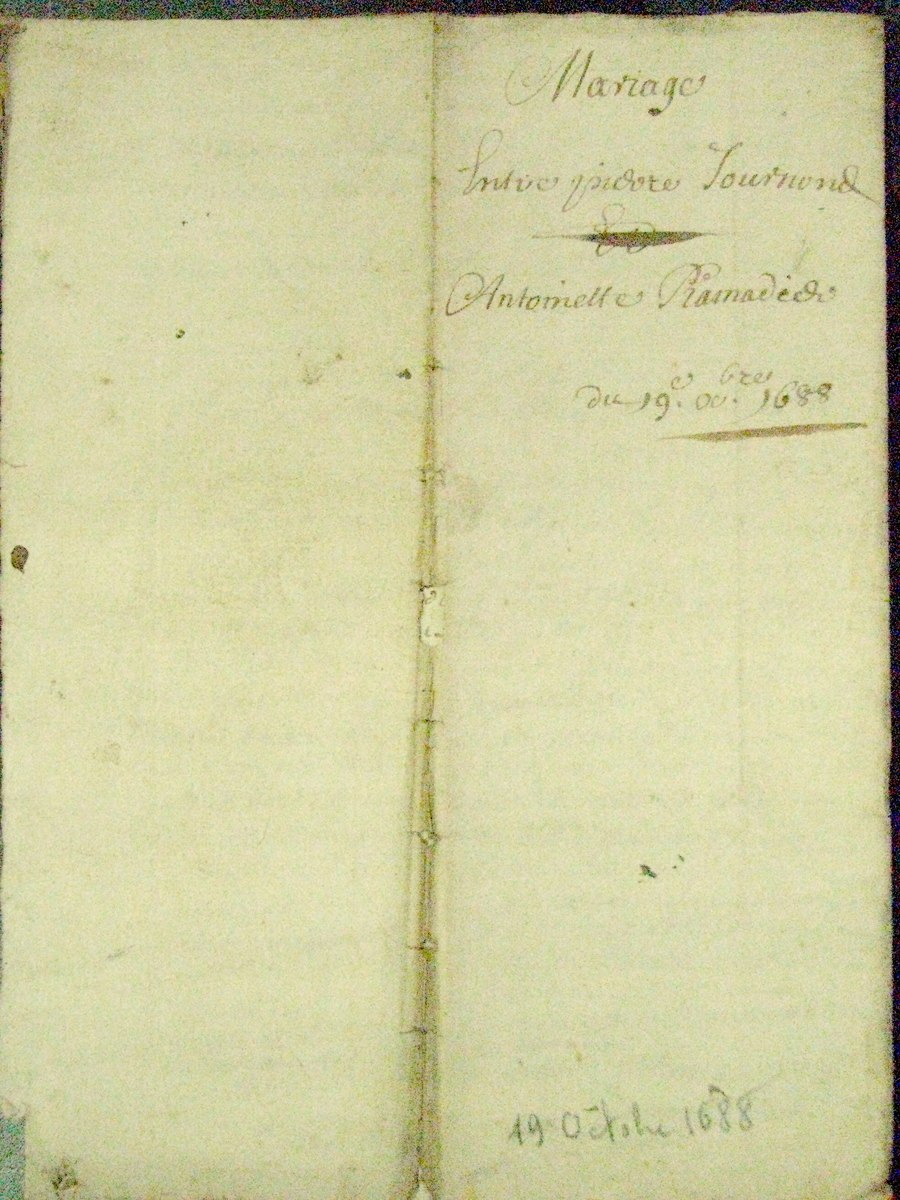 Mariage
Entre pierre Tournond
Et
Antoinette Ramadiee
du 19.e 8.bre 1688
19 Octobre 1688